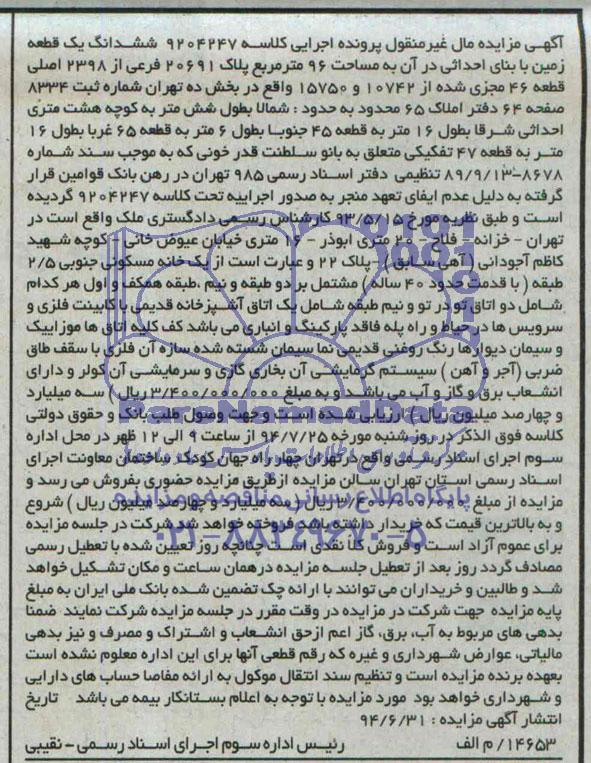 آگهی مزایده مال غیرمنقول پرونده اجرایی کلاسه ۹۲۰۴۲۴۷ ششدانگ یک قطعه
زمین با بنای احداثی در آن به مساحت ۹۶ مترمربع پلاک ۲۰۶۹۱ فرعی از ۲۳۹۸ اصلی
قطعه ۴۶ مجزی شده از ۱۰۷۴۲ و ۱۵۷۵۰ واقع در بخش ده تهران شماره ثبت ۸۳۳۴
صفحه ۶۴ دفتر املاک ۶۵ محدود به حدود : شمالا بطول شش متر به کوچه هشت متری
احداثی شرقا بطول ۱۶ متر به قطعه ۴۵ جنوبا بطول ۶ متر به قطعه ۶۵ غربا بطول ۱۶
متر به قطعه ۴۷ تفکیکی متعلق به بانو سلطنت قدر خونی که به موجب سند شماره
۸۶۷۸-۸۹/۹/۱۳ تنظیمی دفتر اسناد رسمی ۹۸۵ تهران در رهن بانک قوامین قرار
گرفته به دلیل عدم ایفای تعهد منجر به صدور اجراییه تحت کلاسه ۹۲۰۴۲۴۷ گردیده
است و طبق نظریه مورخ ۹۳/۵/۱۵ کارشناس رسمی دادگستری ملک واقع است در
تهران - خزانه - فلاح - ۲۰ متری ابوذر - ۱۶ متری خیابان عیوض خانی - کوچه شهید
کاظم آجودانی (آهی سابق) - پلاک ۲۲ و عبارت است از یک خانه مسکونی جنوبی ۲/۵
طبقه ( با قدمت حدود ۴۰ ساله ) مشتمل بر دو طبقه و نیم ،طبقه همکف و اول هر کدام
شامل دو اتاق تو در تو و نیم طبقه شامل یک اتاق آشپزخانه قدیمی با کابینت فلزی و
سرویس ها در حیاط و راه پله فاقد پارکینگ و انباری می باشد کف کلیه اتاق ها موزاییک
و سیمان دیوارها رنگ روغنی قدیمی نما سیمان شسته شده سازه آن فلزی با سقف طاق
ضربی (آجر و آهن ) سیستم گرمایشی آن بخاری گازی و سرمایشی آن کولر و دارای
انشعاب برق و گاز و آب می باشد و به مبلغ ۳/۴۰۰/۰۰۰/۰۰۰ ریال ) سه میلیارد
و چهارصد میلیون ریال ) ارزیابی شده است و جهت وصول طلب بانک و حقوق دولتی
کلاسه فوق الذکر در روز شنبه مورخه ۹۴/۷/۲۵ از ساعت ۹ الی ۱۲ ظهر در محل اداره
سوم اجرای اسناد رسمی واقع در تهران چهار راه جهان کودک ساختمان معاونت اجرای
اسناد رسمی استان تهران سالن مزایده ازطریق مزایده حضوری بفروش می رسد و
مزایده از مبلغ ۳/۴۰۰/۰۰۰/۰۰۰ ریال ( سه میلیارد و چهارصد میلیون ریال ) شروع
و به بالاترین قیمت که خریدار داشته باشد فروخته خواهد شد شرکت در جلسه مزایده
برای عموم آزاد است و فروش کلا نقدی است چنانچه روز تعیین شده با تعطیل رسمی
مصادف گردد روز بعد از تعطیل جلسه مزایده درهمان ساعت و مکان تشکیل خواهد
شد و طالبین و خریداران می توانند با ارائه چک تضمین شده بانک ملی ایران به مبلغ
پایه مزایده جهت شرکت در مزایده در وقت مقرر در جلسه مزایده شرکت نمایند ضمنا
بدهی های مربوط به آب، برق، گاز اعم ازحق انشعاب و اشتراک و مصرف و نیز بدهی
مالیاتی، عوارض شهرداری و غیره که رقم قطعی آنها برای این اداره معلوم نشده است
بعهده برنده مزایده است و تنظیم سند انتقال موکول به ارائه مفاصا حساب های دارایی
و شهرداری خواهد بود مورد مزایده با توجه به اعلام بستانکار بیمه می باشد تاریخ
انتشار آگهی مزایده : ۹۴/۶/۳۱
۱۴۶۵۳/ م الف رئیس اداره سوم اجرای اسناد رسمی - نقیبی
ParsNamadData
پایگاه اطلاع رسانی مناقصه و مزایده
۰۲۱-۸۸۳۴۹۶۷۰-۵